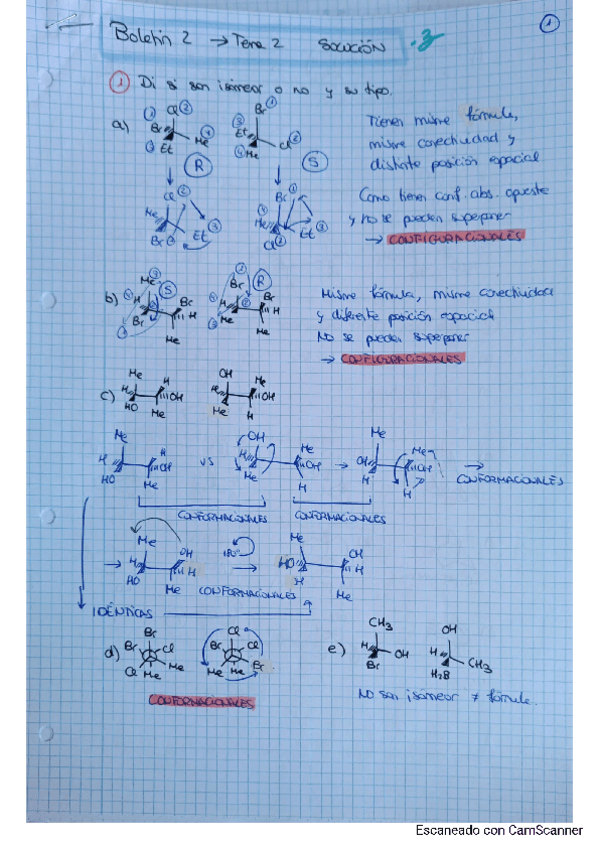 Boletín 2 → Tema 2 SOLUCIÓN
1
1 Di si son isómeros o no y su tipo.
a)
1 Cl 2
Br Me 4
3 Et
R
Br 1
3 Et
4 Me Cl 2
S
Tienen misma fórmula,
misma conectividad y
distinta posición espacial
Como tienen conf. abs. opuesta
y no se pueden superponer
→ CONFIGURACIONALES
Cl 2
Me
Br Et 3
Br 1
Me Et 3
Cl 2
b)
Me
H S Br
Br H
Me
Br R
H Br
H
Me Me
Misma fórmula, misma conectividad
y diferente posición espacial
No se pueden superponer
→ CONFIGURACIONALES
c)
Me H
H OH
HO Me
OH Me
H OH
Me H
Me H
H OH
HO Me
vs
OH Me
H OH
Me H
→
Me
OH Me
H OH
H
→ CONFORMACIONALES
CONFORMACIONALES CONFORMACIONALES
→
Me OH
H H
HO Me
180°
→
Me OH
HO H
H Me
CONFORMACIONALES
IDÉNTICAS
d)
Br
Br Cl
Cl Me
Me
Cl
Br Cl
Me Me Br
CONFORMACIONALES
e)
CH3
H OH
Br
OH
H CH3
H2B
No son isómeros ≠ fórmula.
Escaneado con CamScanner